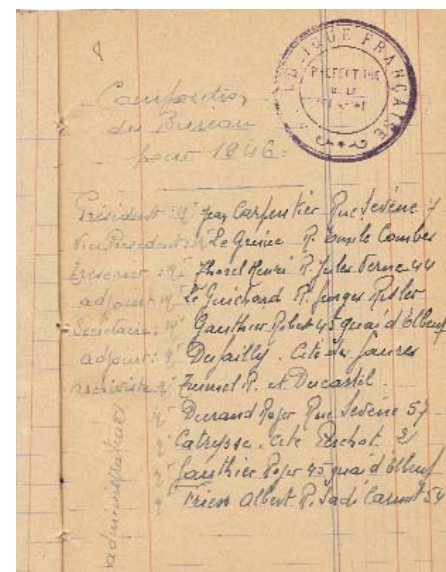 8
RÉPUBLIQUE FRANÇAISE
PREFECTURE
DE LA
Composition
du Bureau
pour 1946.
Président : Mr Jean Carpentier Rue Sevène 4
Vice Président : Mr Le Guine R. Emile Combes
Trésorier : Mr Thorel Henri R. Jules Verne 44
adjoint Mr Le Guichard R. Georges Risler
Secrétaire : Mr Gauthier Robert 45 quai d'Elbeuf
adjoint : Mr Dufailly. Cité des Jaures
archiviste Mr R. A Ducastel.
Mr Durand Roger Rue Sevène 57
Mr Catrysse. Cité 2
Mr Gauthier Roger 45 quai d'Elbeuf
Mr Albert R. Sadi Carnot 54
administrateurs